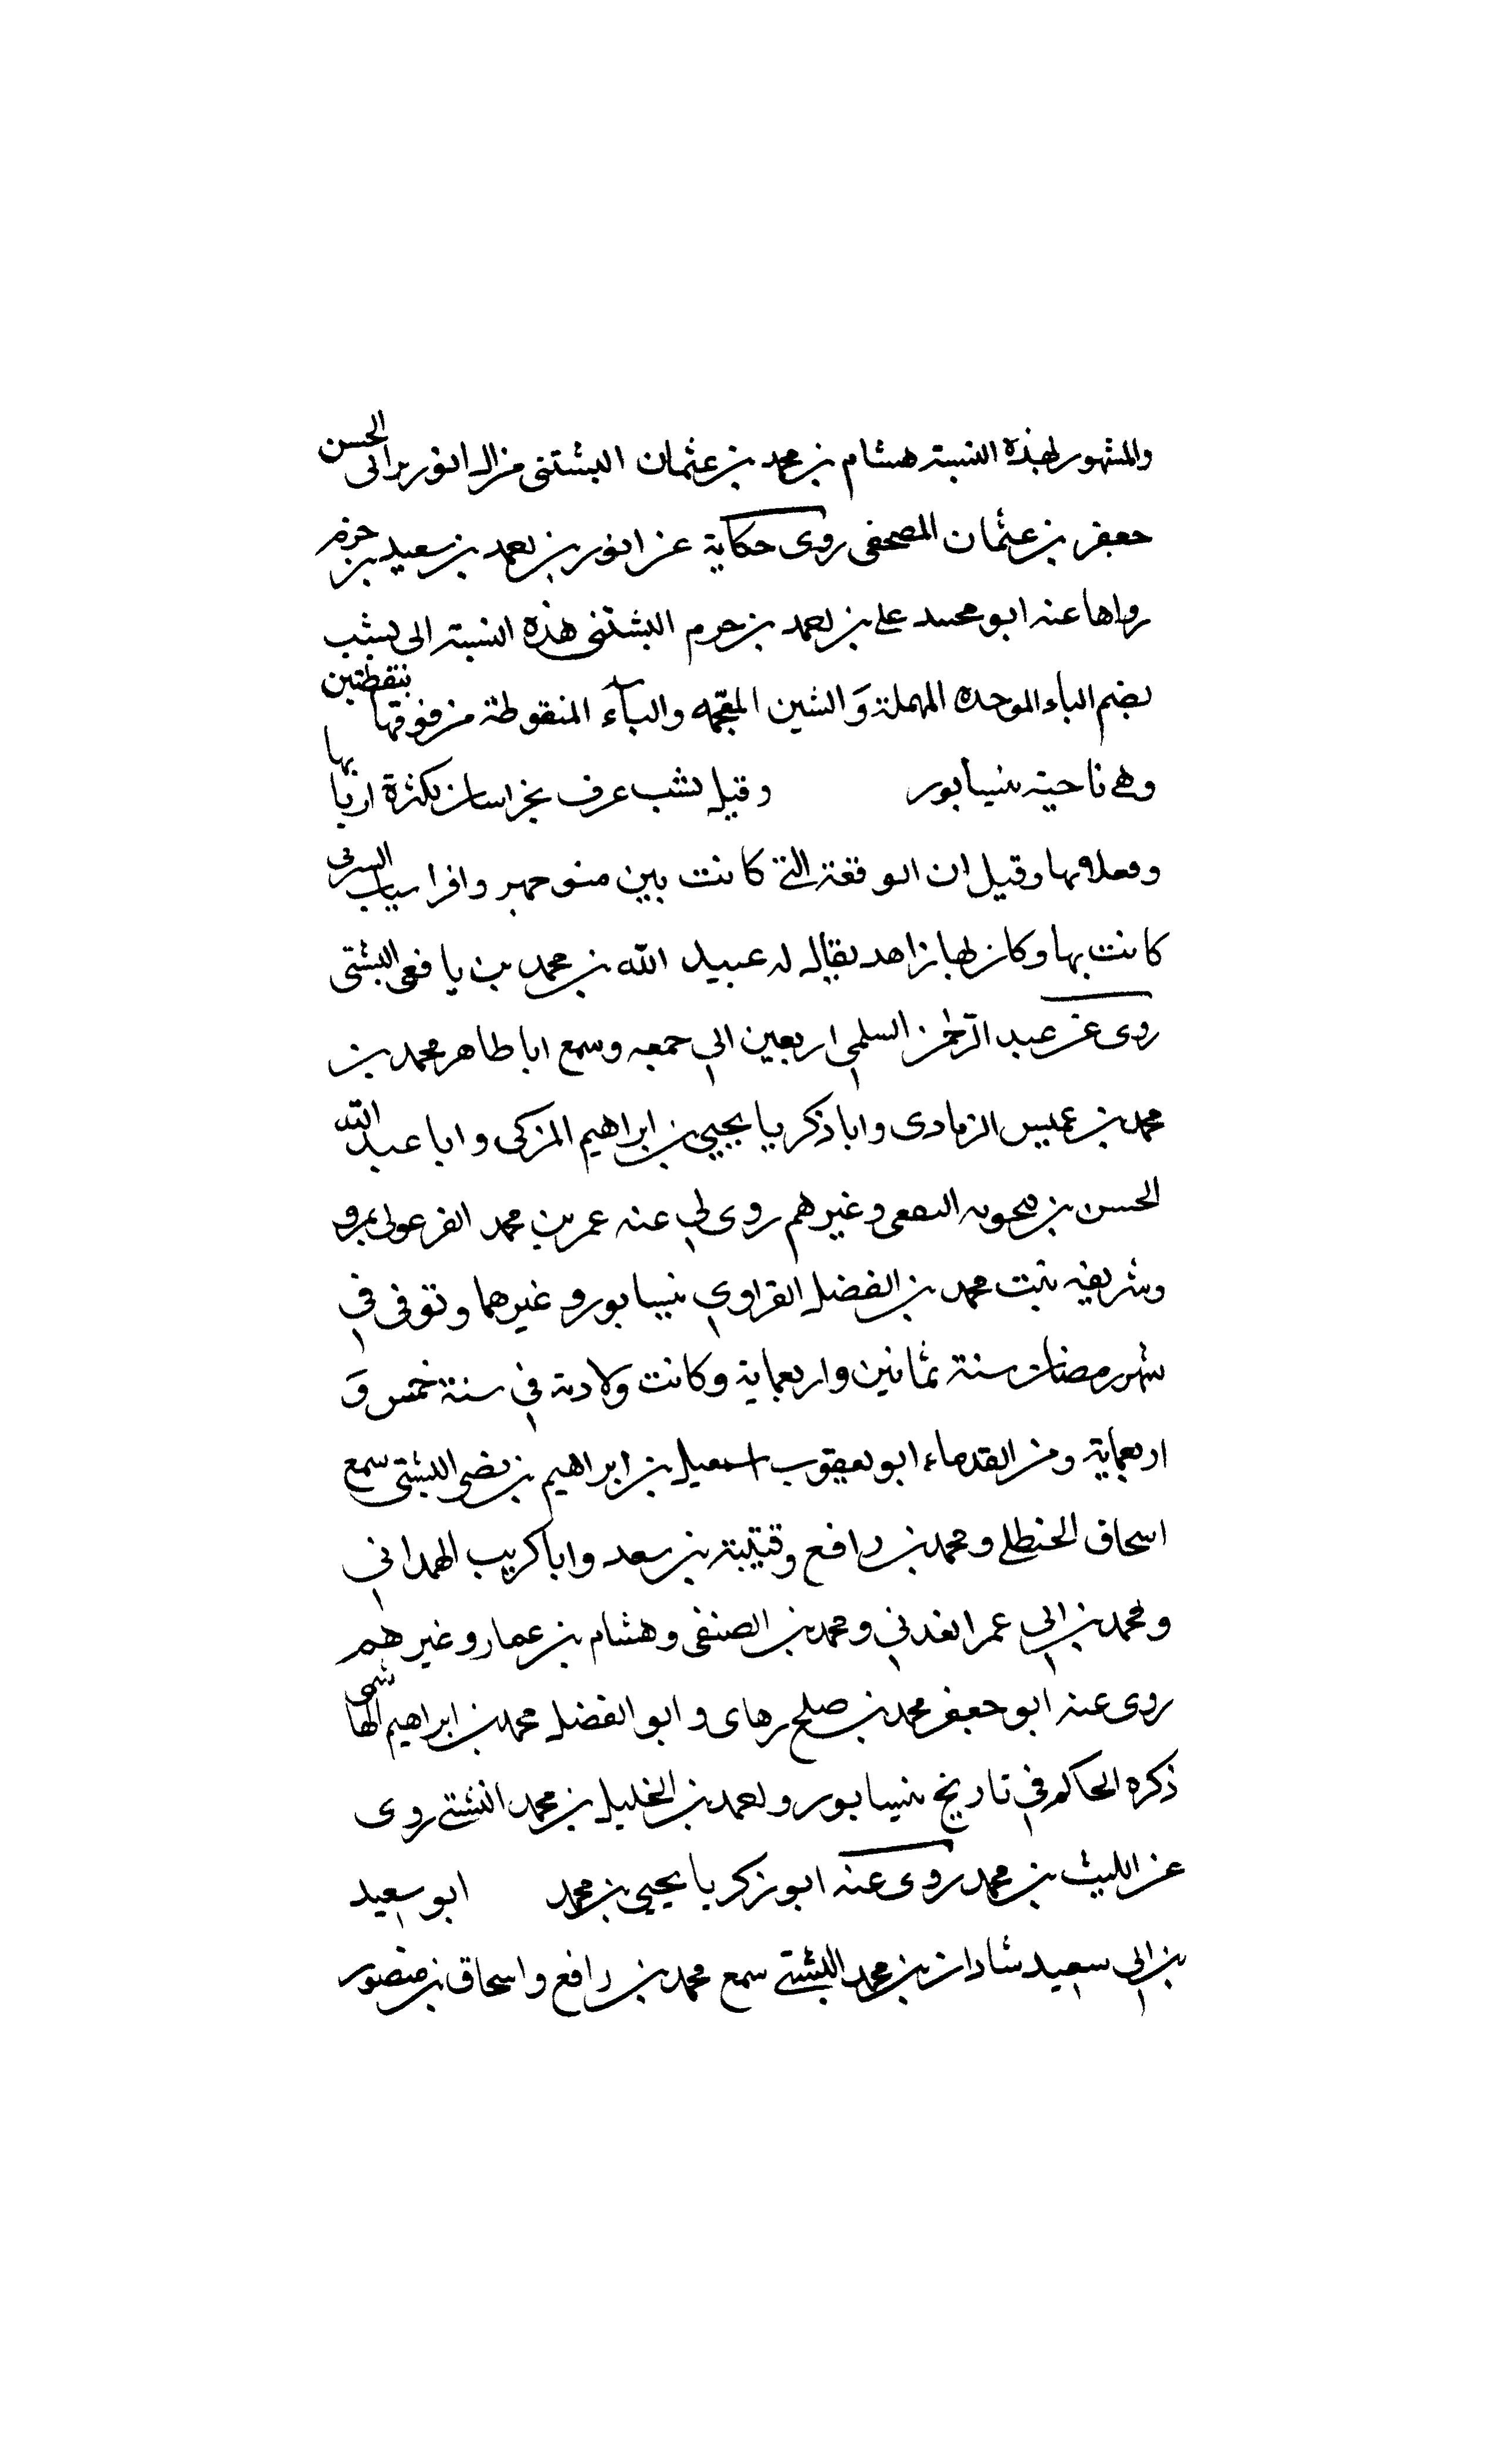 والمشهور لهذه النسبة هشام بن محمد بن عثمان البشتنى من ال الوزير ابى الحسن
جعفر بن عثمان المصحفى روى حكاية عن الوزير بن احمد بن سعيد بن حزم
رواها عنه ابو محمد على بن احمد بن حزم البشتنى هذه النسبة الى بشت
بضم الباء الموحده المهملة وَالشين المعجمه والباء المنقوطة من فوقها بنقطتين
وهى ناحية بنيسابور وقيل بشت عرف بخراسان لكثرة اربابها
وفضلائها وقيل ان الوقعة التى كانت بين منوجهر وافراسياب التركى
كانت بها وكان لها زاهد يقال له عبيد الله بن محمد بن يافعى البشتى
روى عن عبد الرحمن السلمى اربعين ابى جمعه وسمع ابا طاهر محمد بن
محمد بن عميس الزمادى وابا ذكريا يحيى بن ابراهيم المزكى وابا عبد الله
الحسن بن فنحويه وغيرهم روى لى عنه عمر بن محمد الفرغولى بمرو
وشريفه بنت محمد بن الفضل القراوى بنيسابور وغيرهما وتوفى فى
شهر رمضان سنة ثمانين واربعماية وكانت ولادته فى سنة خمس وَ
اربعماية ومن القدماء ابو يعقوب اسمعيل بن ابراهيم بن نصر البشتى سمع
اسحاق الحنظلى ومحمد بن رافع وقتيبة بن سعد وابا كريب الهمدانى
ومحمد بن ابى عمر العدنى ومحمد بن الصنفى وهشام بن عمار وغيرهم
روى عنه ابو جعفر محمد بن صلح رهاى وابو الفضل محمد بن ابراهيم الهاشمى
ذكره الحاكم فى تاريخ نيسابور واحمد بن الخليل بن محمد البشتى روى
عن الليث بن محمد روى عنه ابو زكريا يحيى بن محمد ابو سعيد
بن ابى سعيد شادان بن محمد البشتى سمع محمد بن رافع واسحاق بن منصور